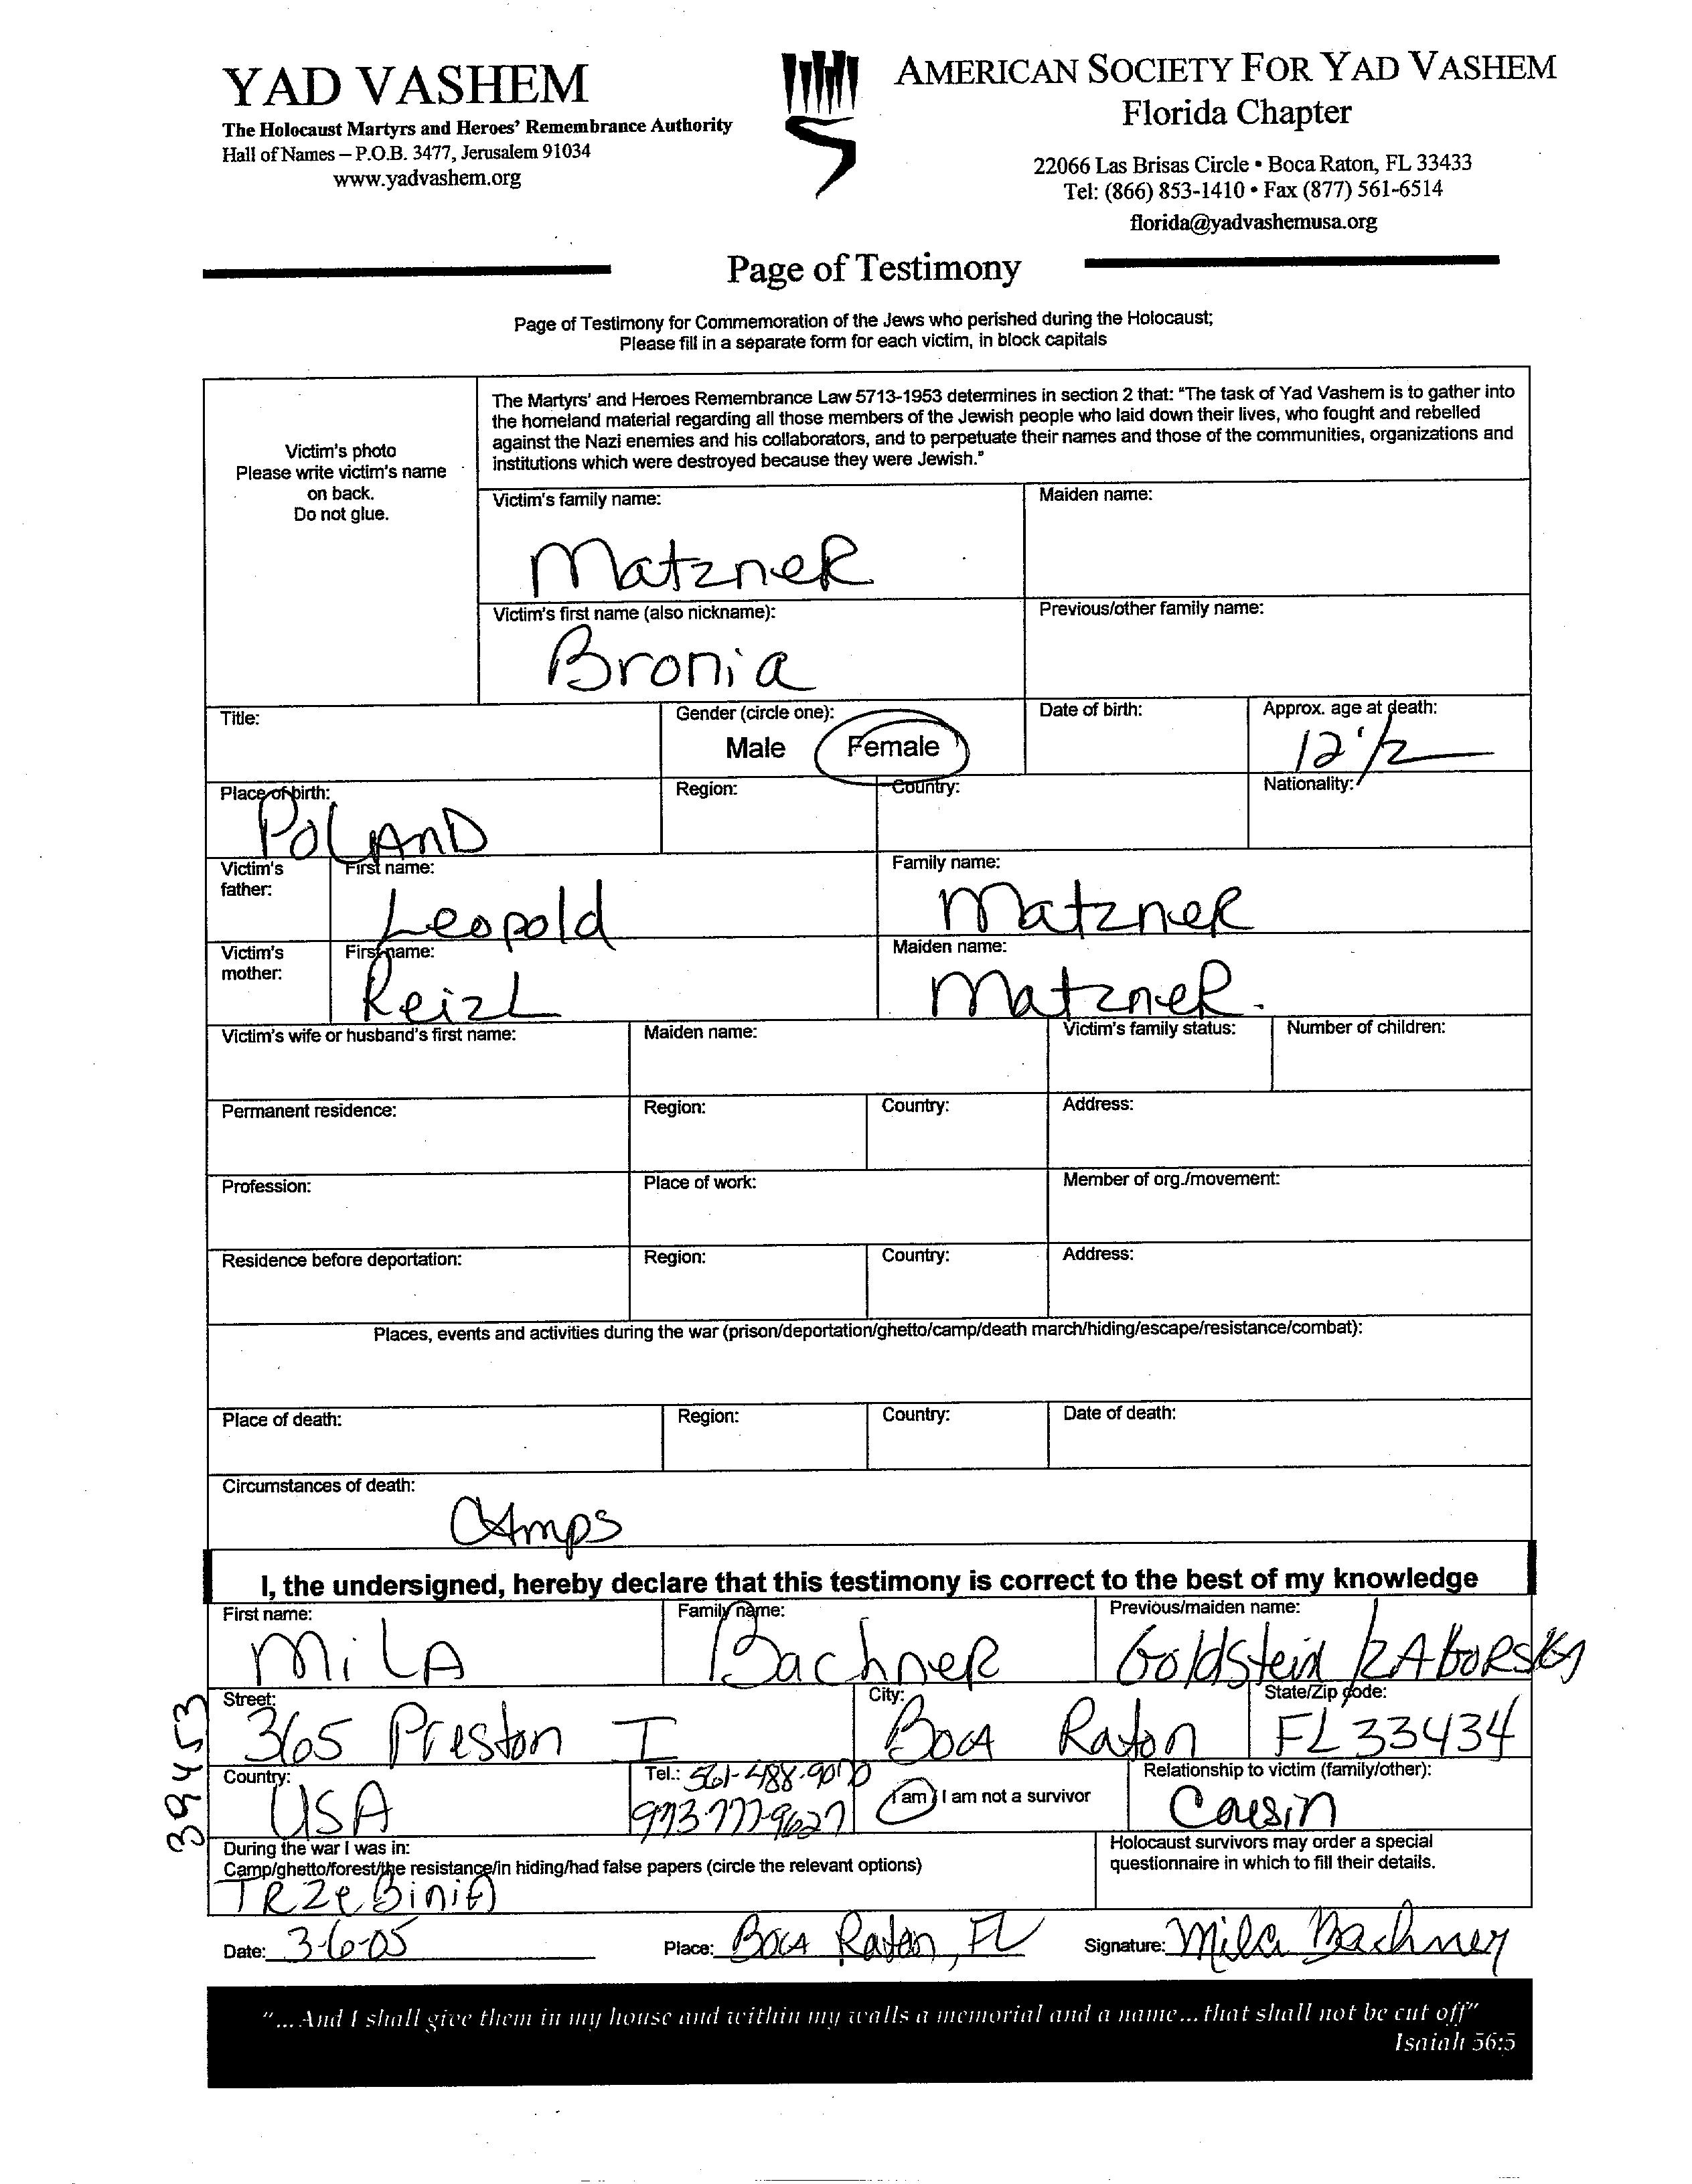 YAD VASHEM
The Holocaust Martyrs and Heroes' Remembrance Authority
Hall of Names – P.O.B. 3477, Jerusalem 91034
www.yadvashem.org
AMERICAN SOCIETY FOR YAD VASHEM
Florida Chapter
22066 Las Brisas Circle • Boca Raton, FL 33433
Tel: (866) 853-1410 • Fax (877) 561-6514
florida@yadvashemusa.org
Page of Testimony
Page of Testimony for Commemoration of the Jews who perished during the Holocaust;
Please fill in a separate form for each victim, in block capitals
Victim's photo
Please write victim's name
on back.
Do not glue.
The Martyrs' and Heroes Remembrance Law 5713-1953 determines in section 2 that: "The task of Yad Vashem is to gather into
the homeland material regarding all those members of the Jewish people who laid down their lives, who fought and rebelled
against the Nazi enemies and his collaborators, and to perpetuate their names and those of the communities, organizations and
institutions which were destroyed because they were Jewish."
Victim's family name: Maiden name:
Matzner
Victim's first name (also nickname): Previous/other family name:
Bronia
Title: Gender (circle one): Date of birth: Approx. age at death:
Male Female 12 1/2
Place of birth: Region: Country: Nationality:
POLAND
Victim's father: First name: Family name:
Leopold Matzner
Victim's mother: First name: Maiden name:
Reizl Matzner.
Victim's wife or husband's first name: Maiden name: Victim's family status: Number of children:
Permanent residence: Region: Country: Address:
Profession: Place of work: Member of org./movement:
Residence before deportation: Region: Country: Address:
Places, events and activities during the war (prison/deportation/ghetto/camp/death march/hiding/escape/resistance/combat):
Place of death: Region: Country: Date of death:
Circumstances of death:
CAmps
I, the undersigned, hereby declare that this testimony is correct to the best of my knowledge
First name: Family name: Previous/maiden name:
MilA Bachner Goldstein / ZABORSKY
Street: City: State/Zip code:
365 Preston I Boca Raton FL 33434
Country: Tel.: 561-488-9070 Relationship to victim (family/other):
USA 973-777-9627 I am I am not a survivor Cousin
During the war I was in: Holocaust survivors may order a special
Camp/ghetto/forest/the resistance/in hiding/had false papers (circle the relevant options) questionnaire in which to fill their details.
TRZeBiniA
Date: 3-6-05 Place: Boca Raton, FL Signature: Mila Bachner
394453
"...And I shall give them in my house and within my walls a memorial and a name...that shall not be cut off"
Isaiah 56:5